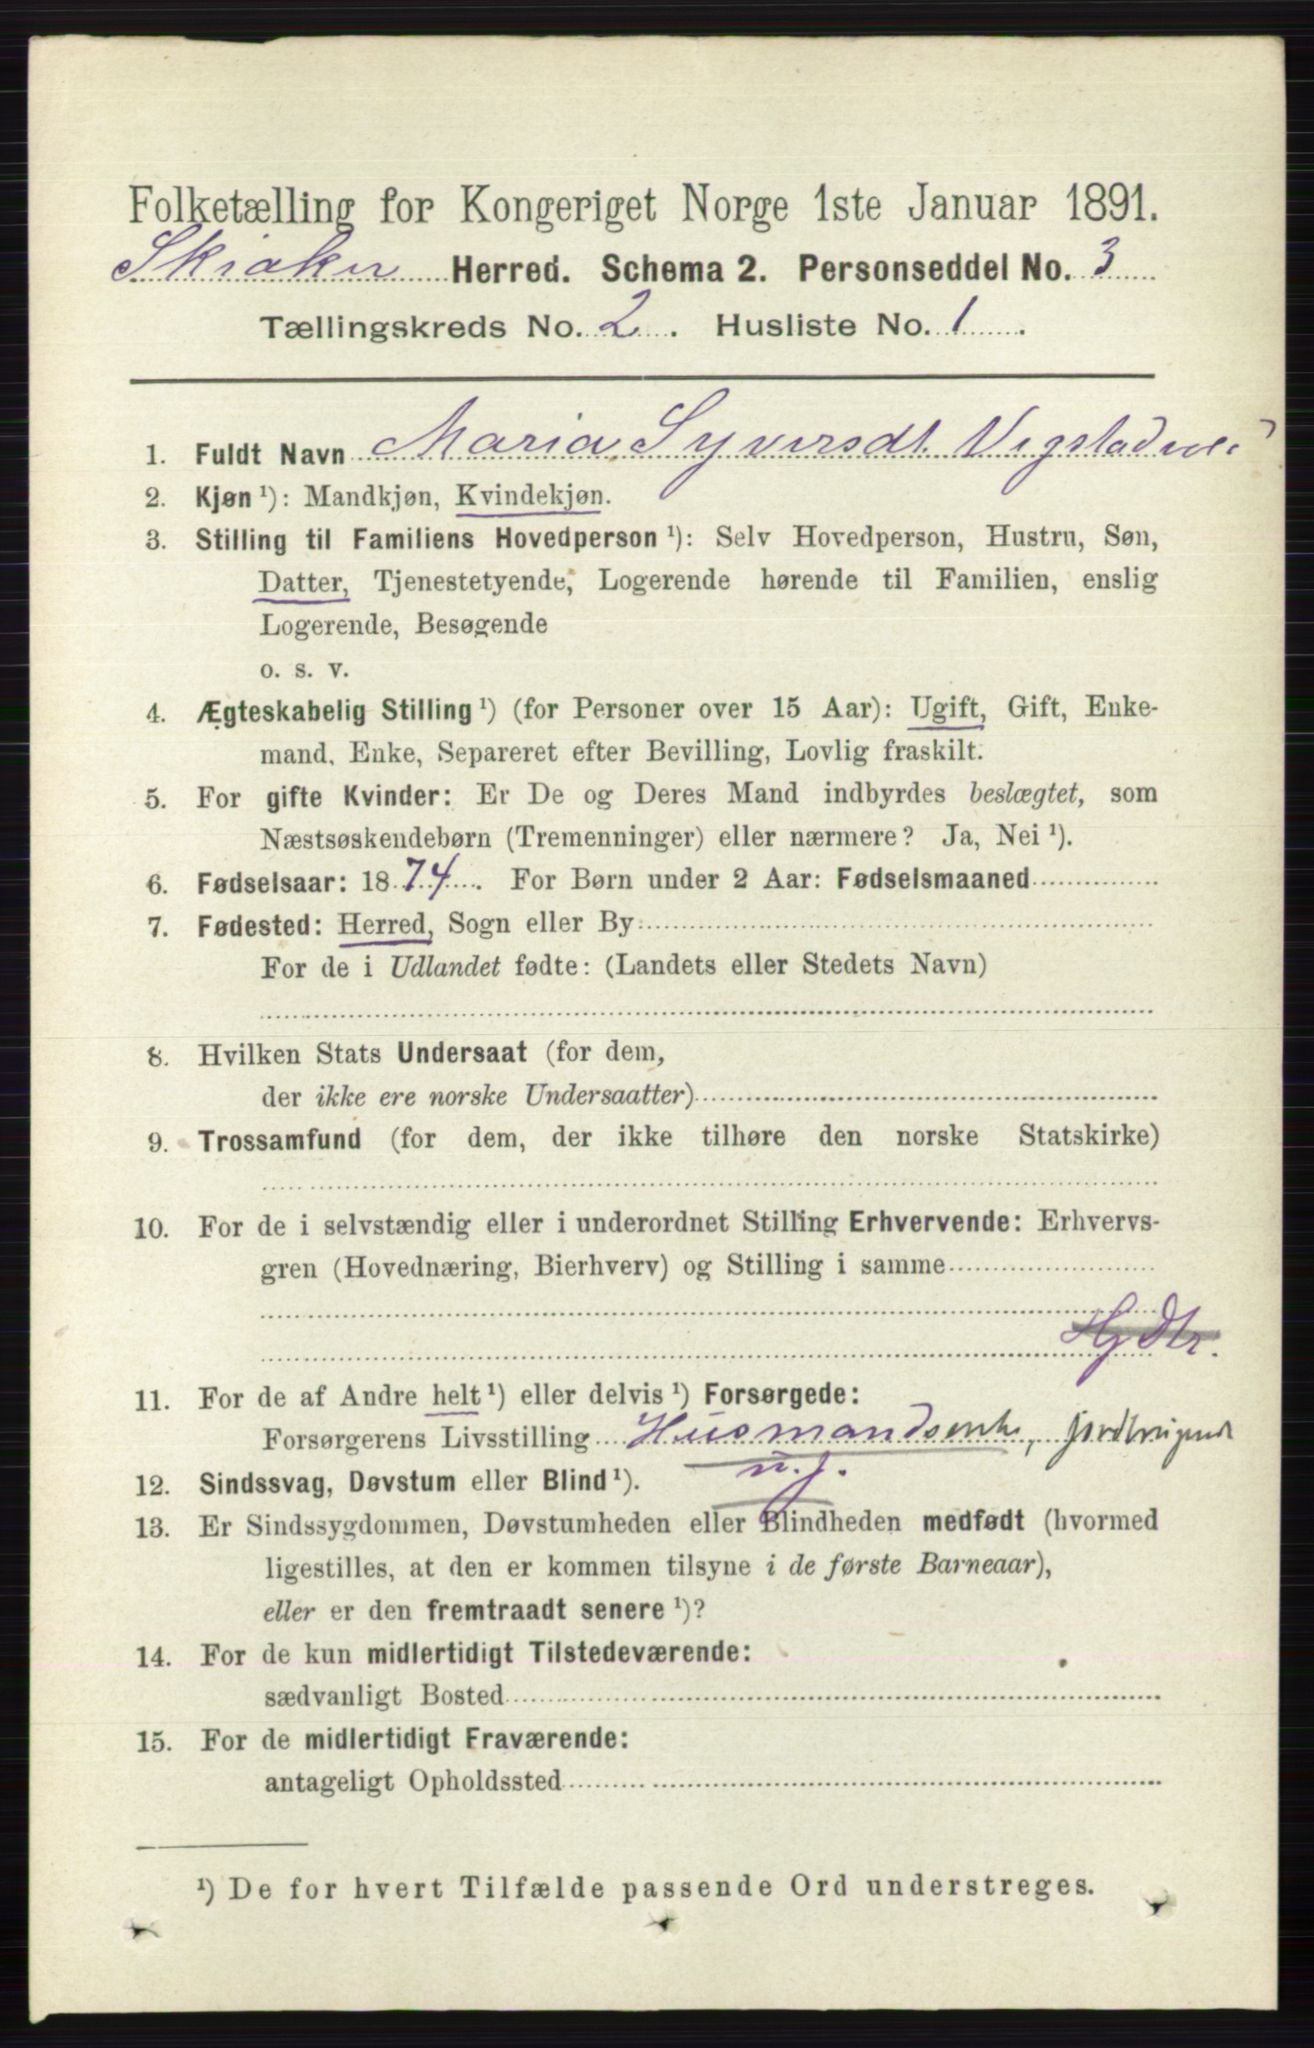 Folketælling for Kongeriget Norge 1ste Januar 1891.
Skiaker Herred. Schema 2. Personseddel No. 3
Tællingskreds No. 2. Husliste No. 1.
1. Fuldt Navn Maria Syversdt.
2. Kjøn ¹): Mandkjøn, Kvindekjøn.
3. Stilling til Familiens Hovedperson ¹): Selv Hovedperson, Hustru, Søn,
Datter, Tjenestetyende, Logerende hørende til Familien, enslig
Logerende, Besøgende
o. s. v.
4. Ægteskabelig Stilling ¹) (for Personer over 15 Aar): Ugift, Gift, Enke-
mand, Enke, Separeret efter Bevilling, Lovlig fraskilt.
5. For gifte Kvinder: Er De og Deres Mand indbyrdes beslægtet, som
Næstsøskendebørn (Tremenninger) eller nærmere? Ja, Nei ¹).
6. Fødselsaar: 1874. For Børn under 2 Aar: Fødselsmaaned
7. Fødested: Herred, Sogn eller By
For de i Udlandet fødte: (Landets eller Stedets Navn)
8. Hvilken Stats Undersaat (for dem,
der ikke ere norske Undersaatter)
9. Trossamfund (for dem, der ikke tilhøre den norske Statskirke)
10. For de i selvstændig eller i underordnet Stilling Erhvervende: Erhvervs-
gren (Hovednæring, Bierhverv) og Stilling i samme
Hjdtr.
11. For de af Andre helt ¹) eller delvis ¹) Forsørgede:
Forsørgerens Livsstilling Husmandsenke, jordbrugende
m. j.
12. Sindssvag, Døvstum eller Blind ¹).
13. Er Sindssygdommen, Døvstumheden eller Blindheden medfødt (hvormed
ligestilles, at den er kommen tilsyne i de første Barneaar),
eller er den fremtraadt senere ¹)?
14. For de kun midlertidigt Tilstedeværende:
sædvanligt Bosted
15. For de midlertidigt Fraværende:
antageligt Opholdssted
¹) De for hvert Tilfælde passende Ord understreges.